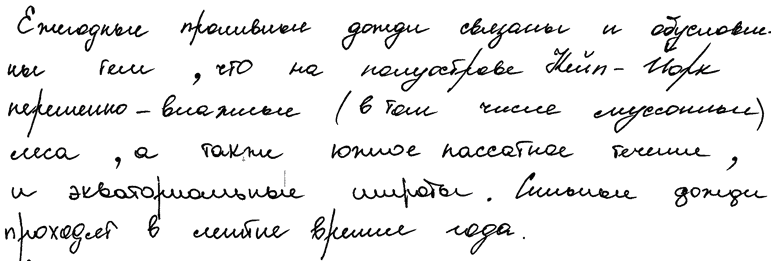 Ежегодные проливные дожди связаны и обусловле-
ны тем, что на полуострове Кейп-Йорк
переменно-влажные (в том числе муссонные)
леса, а также южное пассатное течение,
и экваториальные широты. Сильные дожди
проходят в летние время года.